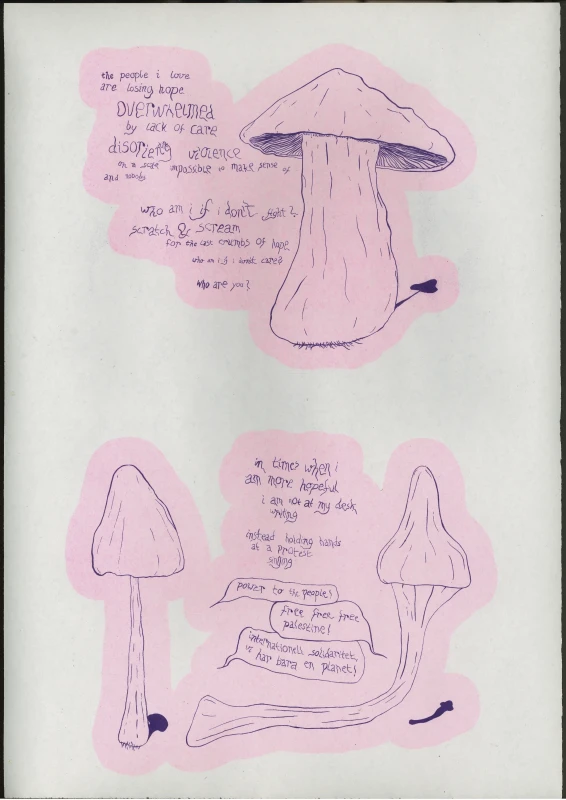 the people i love
are losing hope
OVERWHELMED
by lack of care
disorienting violence
on a scale impossible to make sense of
and nobody
who am i if i don't fight?
scratch & scream
for the last crumbs of hope
who am i if i don't care?
who are you?
in times when i
am more hopeful
i am not at my desk
writing
instead holding hands
at a protest
singing
power to the people!
free free free
palestine!
internationell solidaritet,
vi har bara en planet!